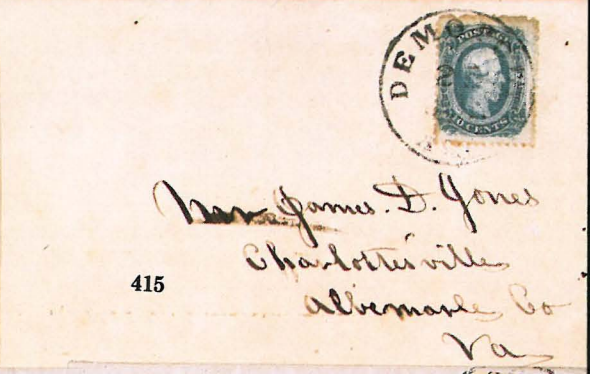 DEMO
POSTAGE
CENTS
James. D. Jones
Charlottesville
Albemarle Co
Va
415